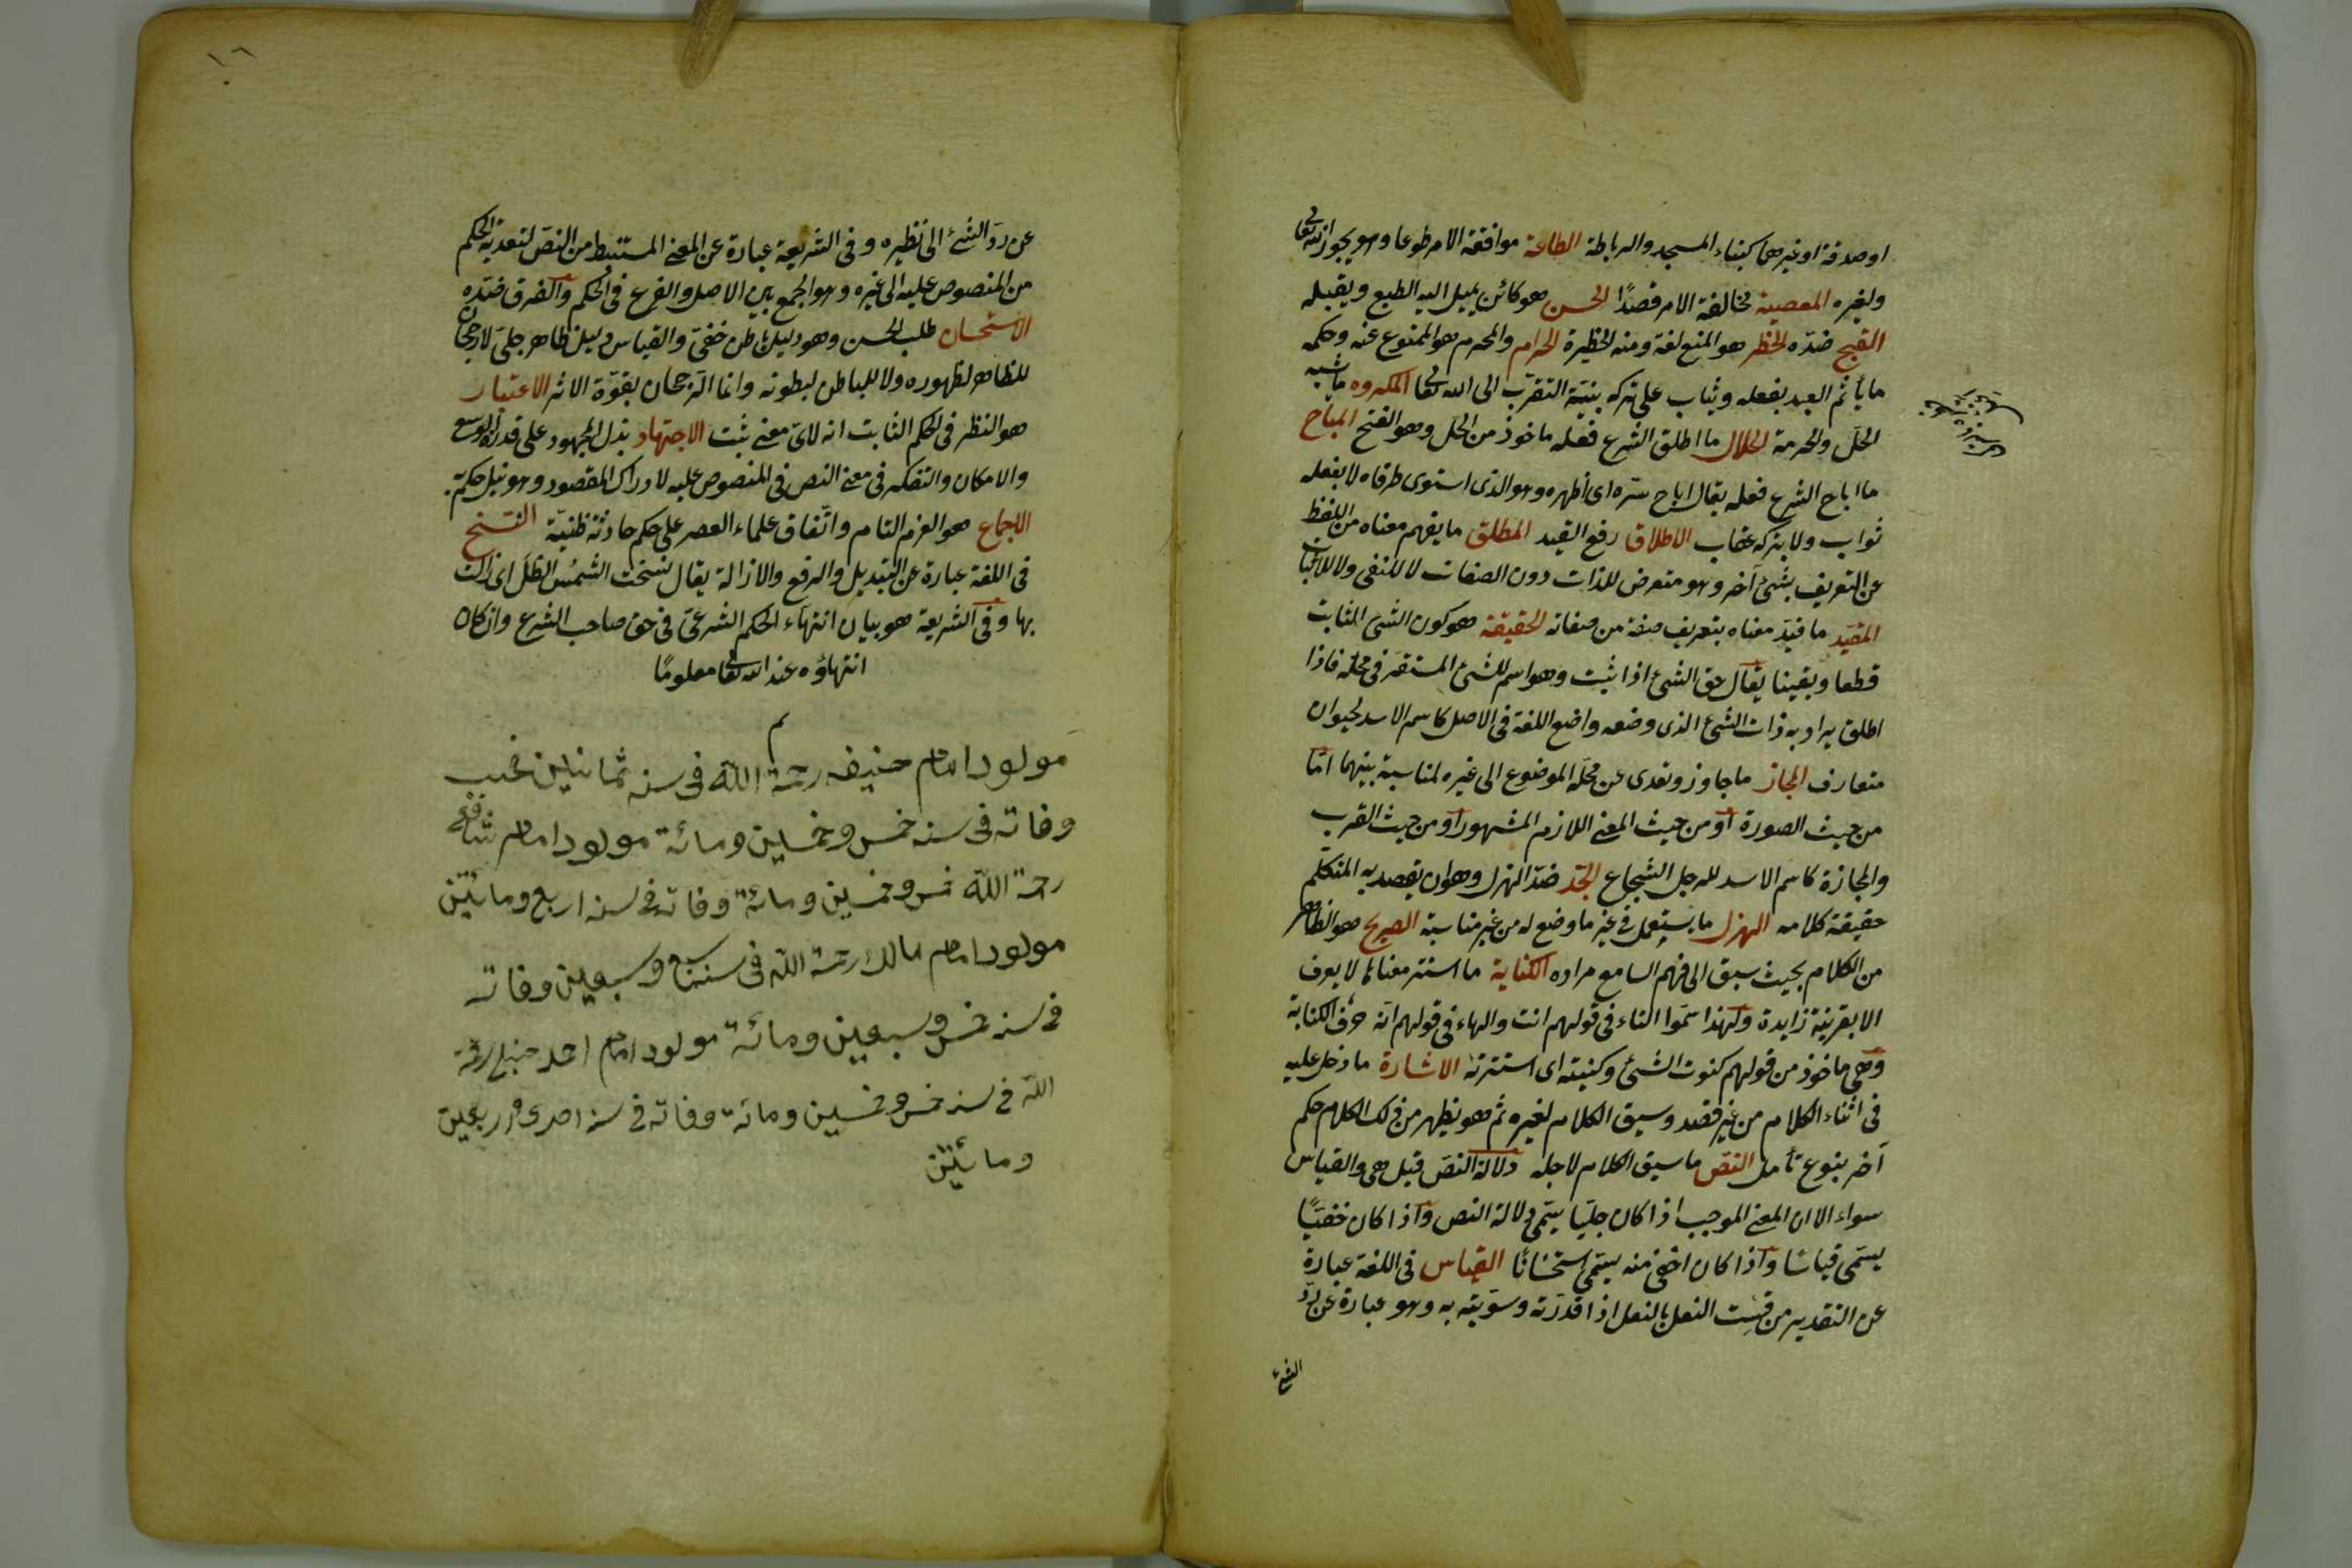 او صدقة او غيرهما كبناء المسجد والرباطة الطاعة موافقة الامر طوعا وهو يجوز لله تعالى
ولغيره المعصية مخالفة الامر قصدًا الحسن هو كائن يميل اليه الطبع ويقبله
القبح ضدّه الحظر هو المنع لغة ومنه الحظيرة الحرام والمحرم هو الممنوع عنه وحكمه
ما يأثم العبد بفعله ويثاب على تركه بنيّة التقرّب الى الله تعالى المكروه ما شبه
الحلّ والحرمة الحلال ما اطلق الشرع فعله ماخوذ من الحلّ وهو الفتح المباح
ما اباح الشرع فعله يقال اباح سرّه اى أظهره وهو الذى استوى طرفاه لا بفعله
ثواب ولا بتركه عقاب الاطلاق رفع القيد المطلق ما يفهم معناه من اللفظ
عن التعريف بشئ آخر وهو متعرض للذات دون الصفات لا للنفى ولا للاثبات
المقيّد ما قيّد معناه بتعريف صفة من صفاته الحقيقة هو كون الشئ الثابت
قطعا ويقينا يقال حق الشئ اذا ثبت وهو اسم للشئ المستقر فى محلّه فاذا
اطلق يراد به ذات الشئ الذى وضعه واضع اللغة فى الاصل كاسم الاسد لحيوان
متعارف المجاز ما جاوز وتعدى عن محلّه الموضوع الى غيره لمناسبة بينهما امّا
من حيث الصورة أو من حيث المعنى اللازم المشهور أو من حيث القرب
والمجازة كاسم الاسد للرجل الشجاع الجّد ضدّ الهزل وهو ان يقصد به المتكلم
حقيقة كلامه الهزل ما يستعمل فى غير ما وضع له من غير مناسبة الصريح هو الظاهر
من الكلام بحيث سبق الى فهم السامع مراده الكناية ما استتر معناه لا يعرف
الا بقرينة زايدة ولهذا سمّوا التاء فى قولهم انت والهاء فى قولهم انه حرف الكناية
وهى ماخوذ من قولهم كنوت الشئ وكنيته اى استترته الاشارة ما دخل عليه
فى أثناء الكلام من غير قصد وسيق الكلام لغيره ثم هو يظهر من ذلك الكلام حكم
آخر بنوع تأمل النصّ ما سيق الكلام لاجله دلالة النصّ قيل هى والقياس
سواء الا ان المعنى الموجب اذا كان جليّا يسمّى دلالة النص واذا كان خفيّا
يسمّى قياسًا واذا كان اخفى منه يسمّى استحسانًا القياس فى اللغة عبارة
عن التقدير من قست النعل بالنعل اذا قدّرته وسوّيته به وهو عبارة عن ردّ
الشئ
١٦
عن ردّ الشئ الى نظيره وفى الشريعة عبارة عن المعنى المستنبط من النصّ لتعدية الحكم
من المنصوص عليه الى غيره وهو الجمع بين الاصل والفرع فى الحكم والفرق ضدّه
الاستحسان طلب الحسن وهو دليل باطن خفىّ والقياس دليل ظاهر جلىّ لا رجحان
للظاهر لظهوره ولا للباطن لبطونه وانما الترجحان بقوّة الاثر الاعتبار
هو النظر فى الحكم الثابت انه لاىّ معنى ثبت الاجتهاد بذل المجهود على قدر الوسع
والامكان والتفكر فى معنى النص فى المنصوص عليه لادراك المقصود وهو نيل حكم به
الاجماع هو العزم التام واتّفاق علماء العصر على حكم حادثة ظنيّة النسخ
فى اللغة عبارة عن التبديل والرفع والازالة يقال نسخت الشمس الظلّ اى زالت
بها وفى الشريعة هو بيان انتهاء الحكم الشرعىّ فى حق صاحب الشرع وان كان
انتهاؤه عند الله تعالى معلومًا
م
مولود امام حنيفه رحمة الله فى سنه ثمانين
وفاته فى سنه خمس وخمسين ومائة مولود امام شافعى
رحمة الله خمس وخمسين ومائة وفاته فى سنه اربع ومائتين
مولود امام مالك رحمة الله فى سنه وسبعين وفاته
فى سنه خمس وسبعين ومائة مولود امام احمد حنبل رحمة
الله فى سنه خمس وخمسين ومائة وفاته فى سنه احدى واربعين
ومائتين